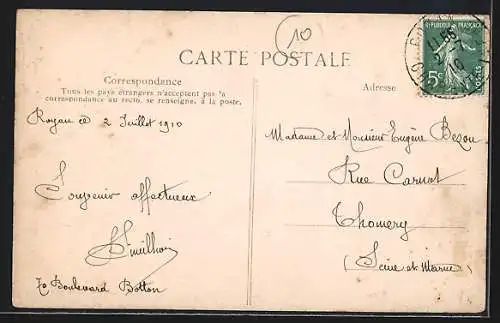 10
CARTE POSTALE
RÉPUBLIQUE FRANÇAISE
5c
Correspondance
Tous les pays étrangers n'acceptent pas la
correspondance au recto, se renseigner, à la poste.
Adresse
Royan le 2 Juillet 1910
Souvenir affectueux
70 Boulevard Botton
Madame et Monsieur Eugène Bezou
Rue Carnot
Thomery
(Seine et Marne)